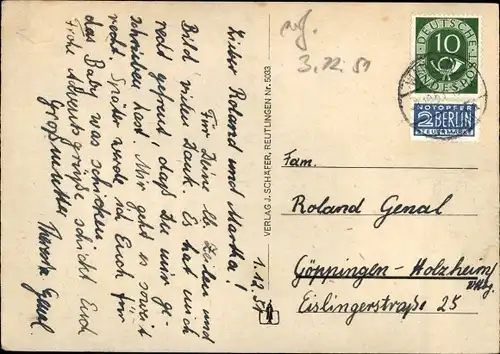 Lieber Roland und Martha!
Für Deine lb. Zeilen und
Bild vielen Dank. Es hat mich
recht gefreut, daß Du mir ge-
schrieben hast. Mir geht es soweit
recht. Später werde ich Euch für
das Baby was schicken.
Frohe Adventsgrüße schickt Euch
Großmutter Genal.
1.12.51
VERLAG J. SCHÄFER, REUTLINGEN Nr. 5033
3.12.51
DEUTSCHE
10
BUNDESPOST
NOTOPFER
2 BERLIN
STEUERMARKE
Fam.
Roland Genal
Göppingen-Holzheim
Wttbg.
Eislingerstraße 25